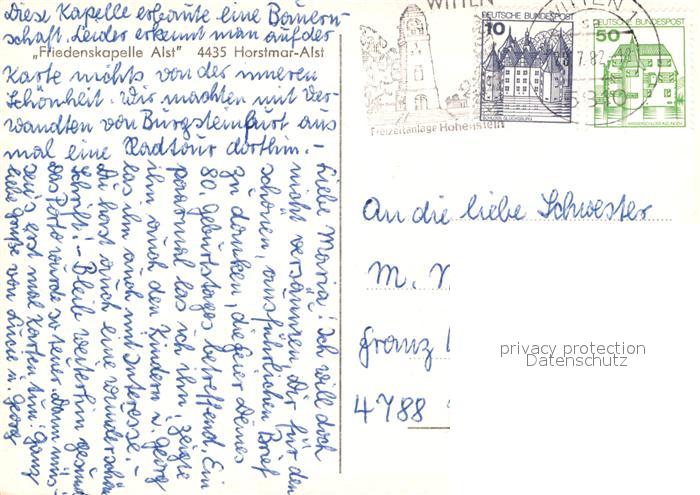 Diese Kapelle erbaute eine Bauern-
schaft. Leider erkennt man auf der
„Friedenskapelle Alst" 4435 Horstmar-Alst
Karte nichts von der inneren
Schönheit. Wir machten mit Ver-
wandten von Burgsteinfurt aus
mal eine Radtour dorthin. -
Liebe Maria! Ich will doch
nicht versäumen, Dir für den
schönen, ausführlichen Brief
zu danken, die Feier Deines
80. Geburtstages betreffend. Ein
paarmal las ich ihn, zeigte
ihn auch den Kindern u. Georg
las ihn auch mit Interesse. -
Du hast auch eine wunderschöne
Schrift! - Bleib weiterhin gesund
das Porto wurde so teuer. Dann muss
es erst mal Karten tun! Ganz
liebe Grüße von u. Georg
WITTEN
Freizeitanlage Hohenstein
10
DEUTSCHE BUNDESPOST
SCHLOSS GLÜCKSBURG
WITTEN 1
5810
50
DEUTSCHE BUNDESPOST
WASSERSCHLOSS INZLINGEN
An die liebe Schwester
M.
Franz
4788
privacy protection
Datenschutz